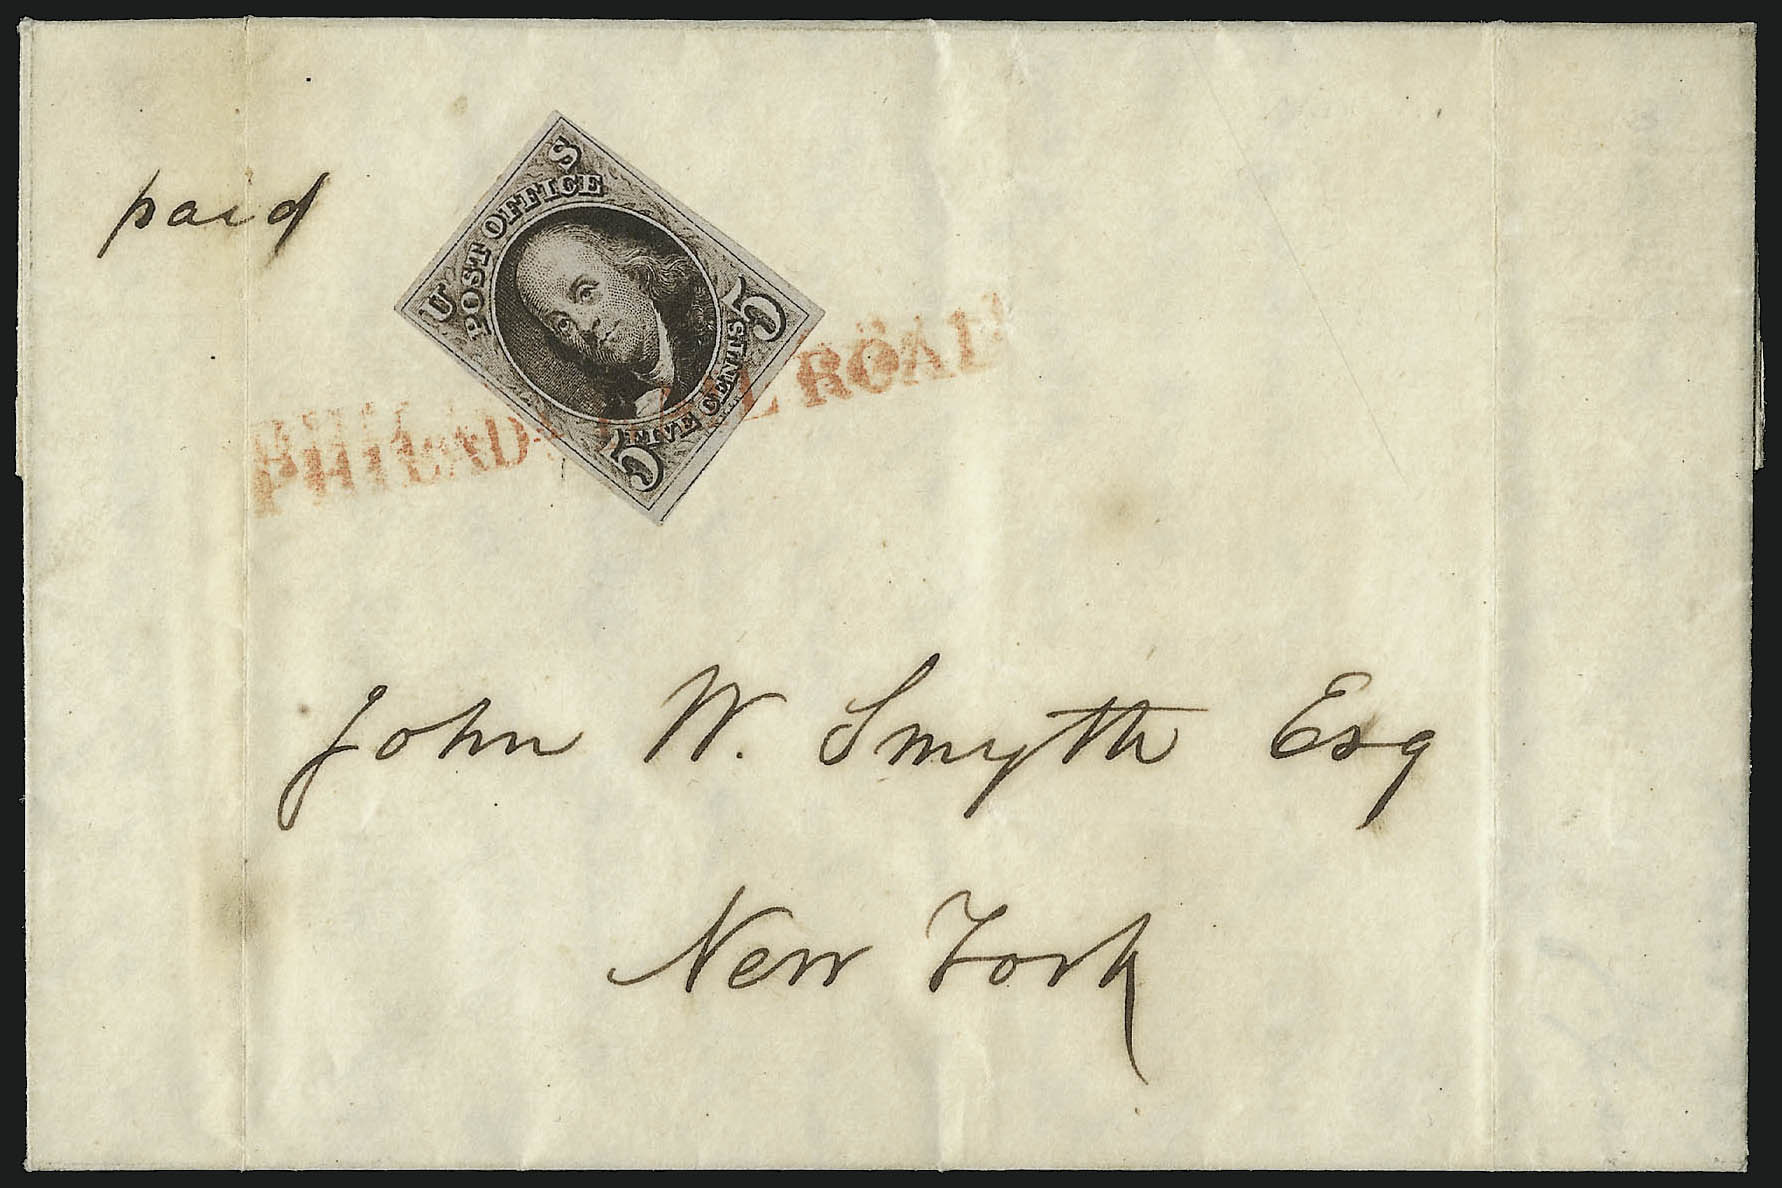 paid
U S
POST OFFICE
FIVE CENTS
5 5
PHILADA RAIL ROAD
John W. Smyth Esq
New York